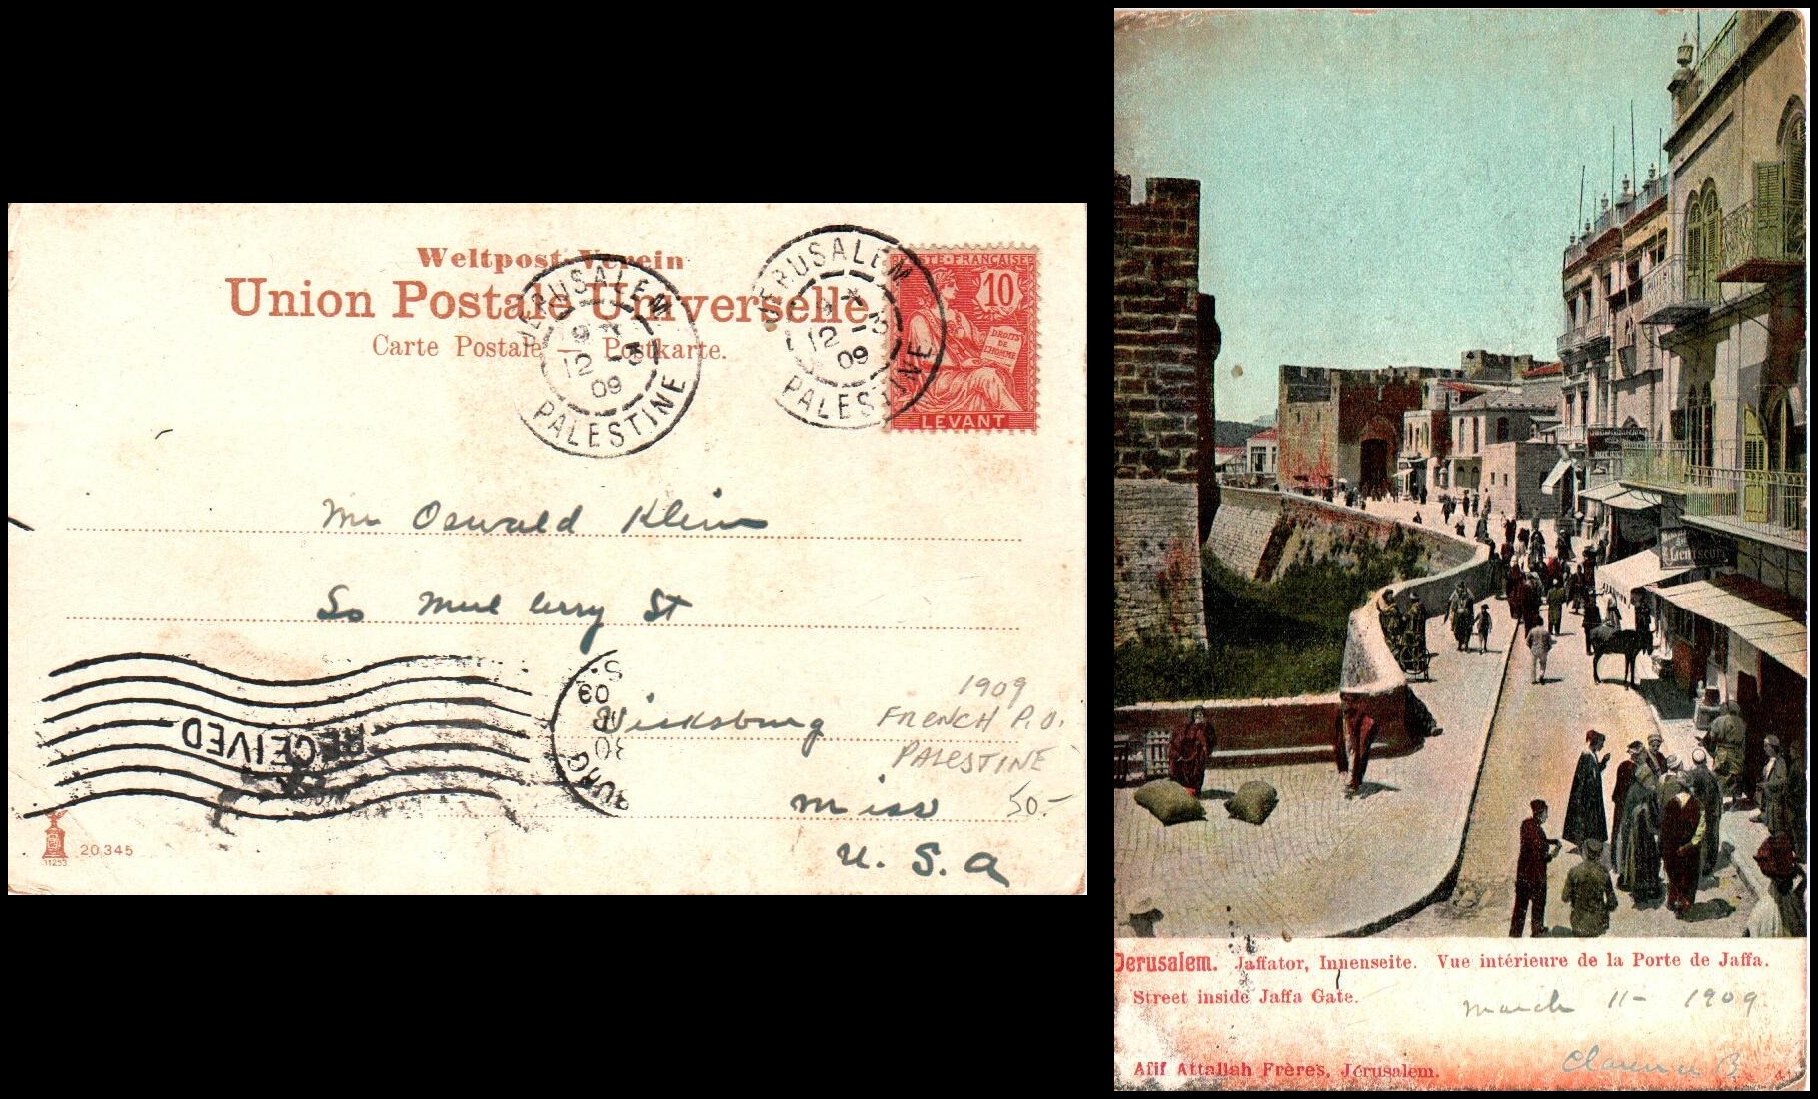 Weltpost-Verein
Union Postale Universelle
Carte Postale — Postkarte.
JERUSALEM
9 *
12 -3
09
PALESTINE
JERUSALEM
*
12 -3
09
PALESTINE
POSTE FRANÇAISE
10
DROITS
DE
L'HOMME
LEVANT
Mr Oswald Klein
So Mulberry St
Vicksburg
Miss
U. S. A
1909
FRENCH P.O.
PALESTINE
50-
RECEIVED
BURG
30
20345
11253
Jerusalem. Jaffator, Innenseite. Vue intérieure de la Porte de Jaffa.
Street inside Jaffa Gate.
March 11- 1909
Afif Attallah Frères, Jérusalem.
Clarence B.